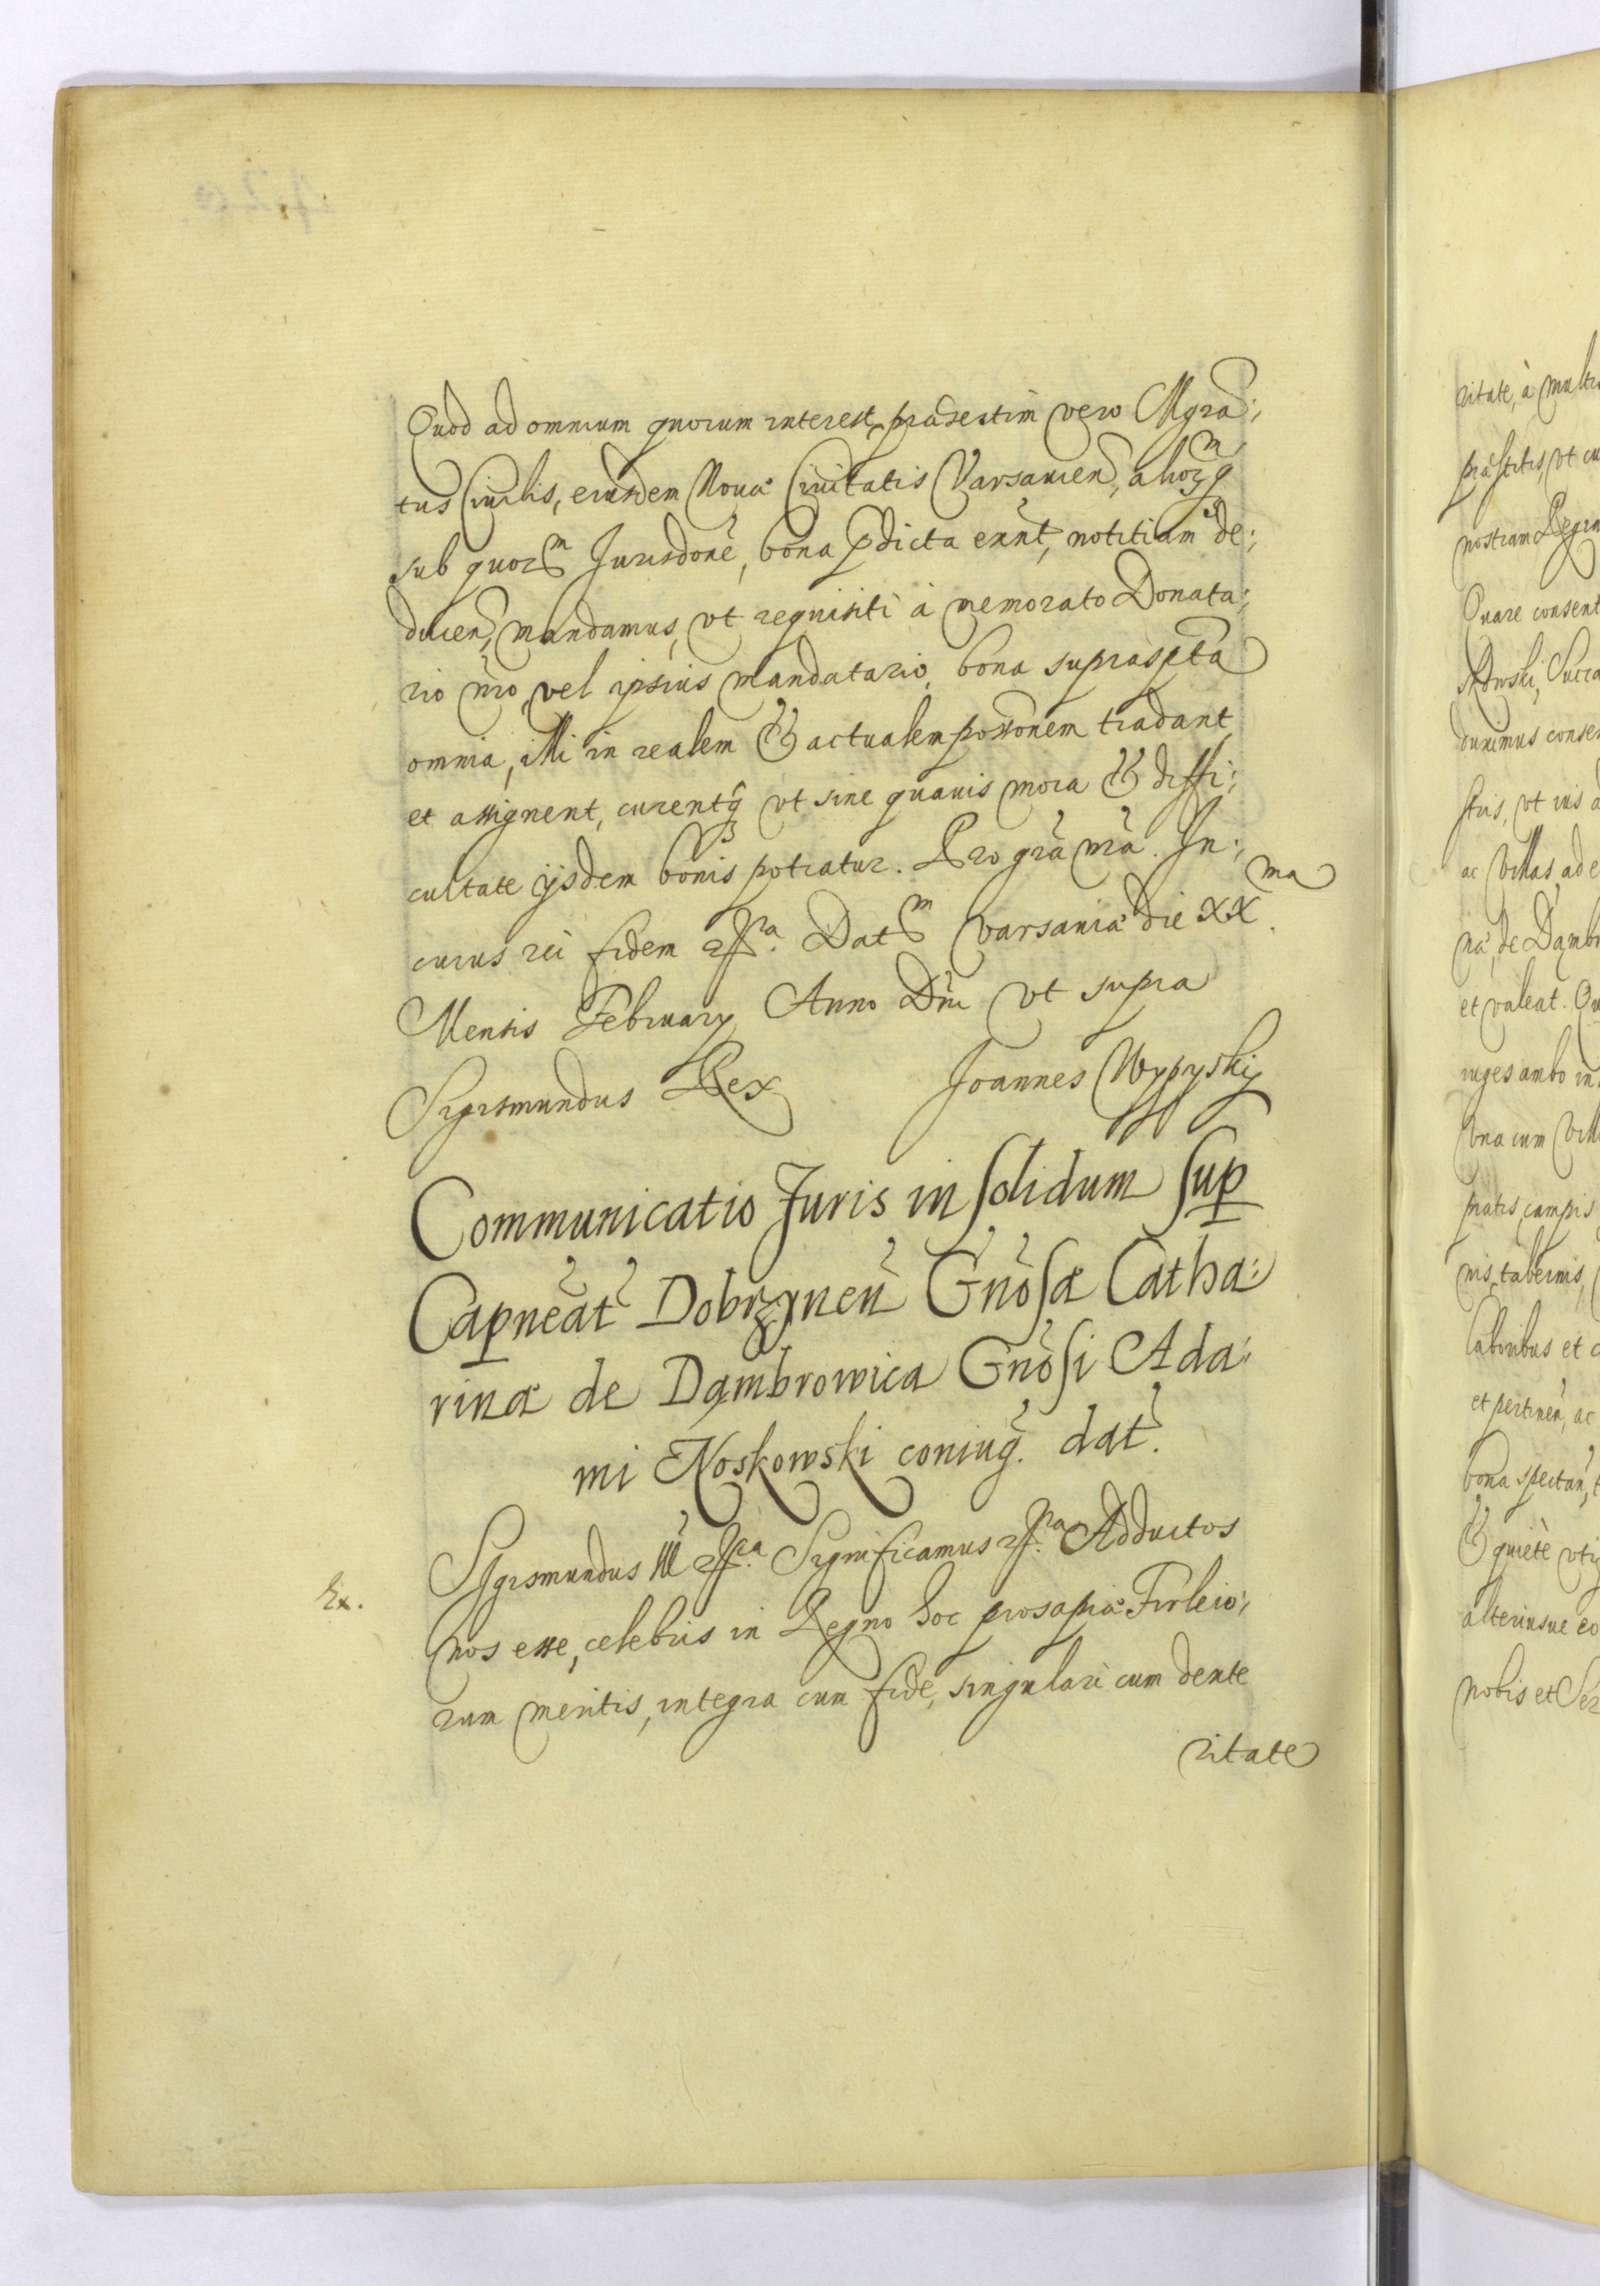 Quod ad omnium quorum interest, præsertim vero Mgra:
tus Ciuilis, eiusdem Nouæ Ciuitatis Varsauien, alior̃mq
sub quor̃m Jurisdone, bona pdicta erunt, notitiam de:
ducen, mandamus, vt requisiti à memorato Donata:
rio nro, vel ipsius mandatario, bona suprascpta
omnia, illi in realem & actualem possonem tradant
et assignent, curentq vt sine quauis mora & diffi:
cultate ijsdem bonis potiatur. Pro gra nra. In:
cuius rei fidem rẽpa. Datm Varsauiæ die XXma.
Mensis February Anno Dni vt supra
Sigismundus Rex Joannes Wypyski
Communicatio Juris in solidum sup
Capneat Dobrzynen Gnosæ Catha:
rinæ de Dąmbrowica Gnosi Ada:
mi Noskowski coniug. dat.
Ex.
Sigismundus III rẽpa. Significamus rẽpa. Adductos
nos esse, celebris in Regno hoc prosapiæ Firleio:
rum meritis, integra cum fide, singulari cum dexte
ritate
ritate, à multis
præstitis, vt cu
nostram Regia
Quare consent
skowski, Succa
duximus conse
ac Villas, ad e
na, de Dąmbr
et valeat. Qu
iuges ambo in
vna cum Vill
pratis, campis
nis, tabernis,
laboribus et c
et pertinen, ac
bona spectan, t
& quiete vti
alteriusue eo
nobis et Ser